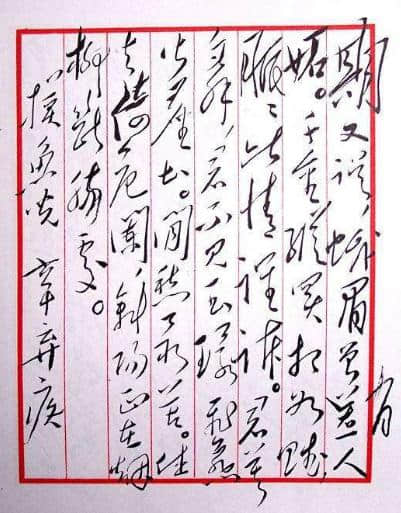 期又误,蛾眉曾有人
妬。千金纵买相如赋
脈〻此情谁诉。君莫
舞,君不见玉环飞燕
皆尘土。闲愁最苦。休
去倚危阑,斜阳正在烟
柳断腸处。
摸鱼儿 辛弃疾